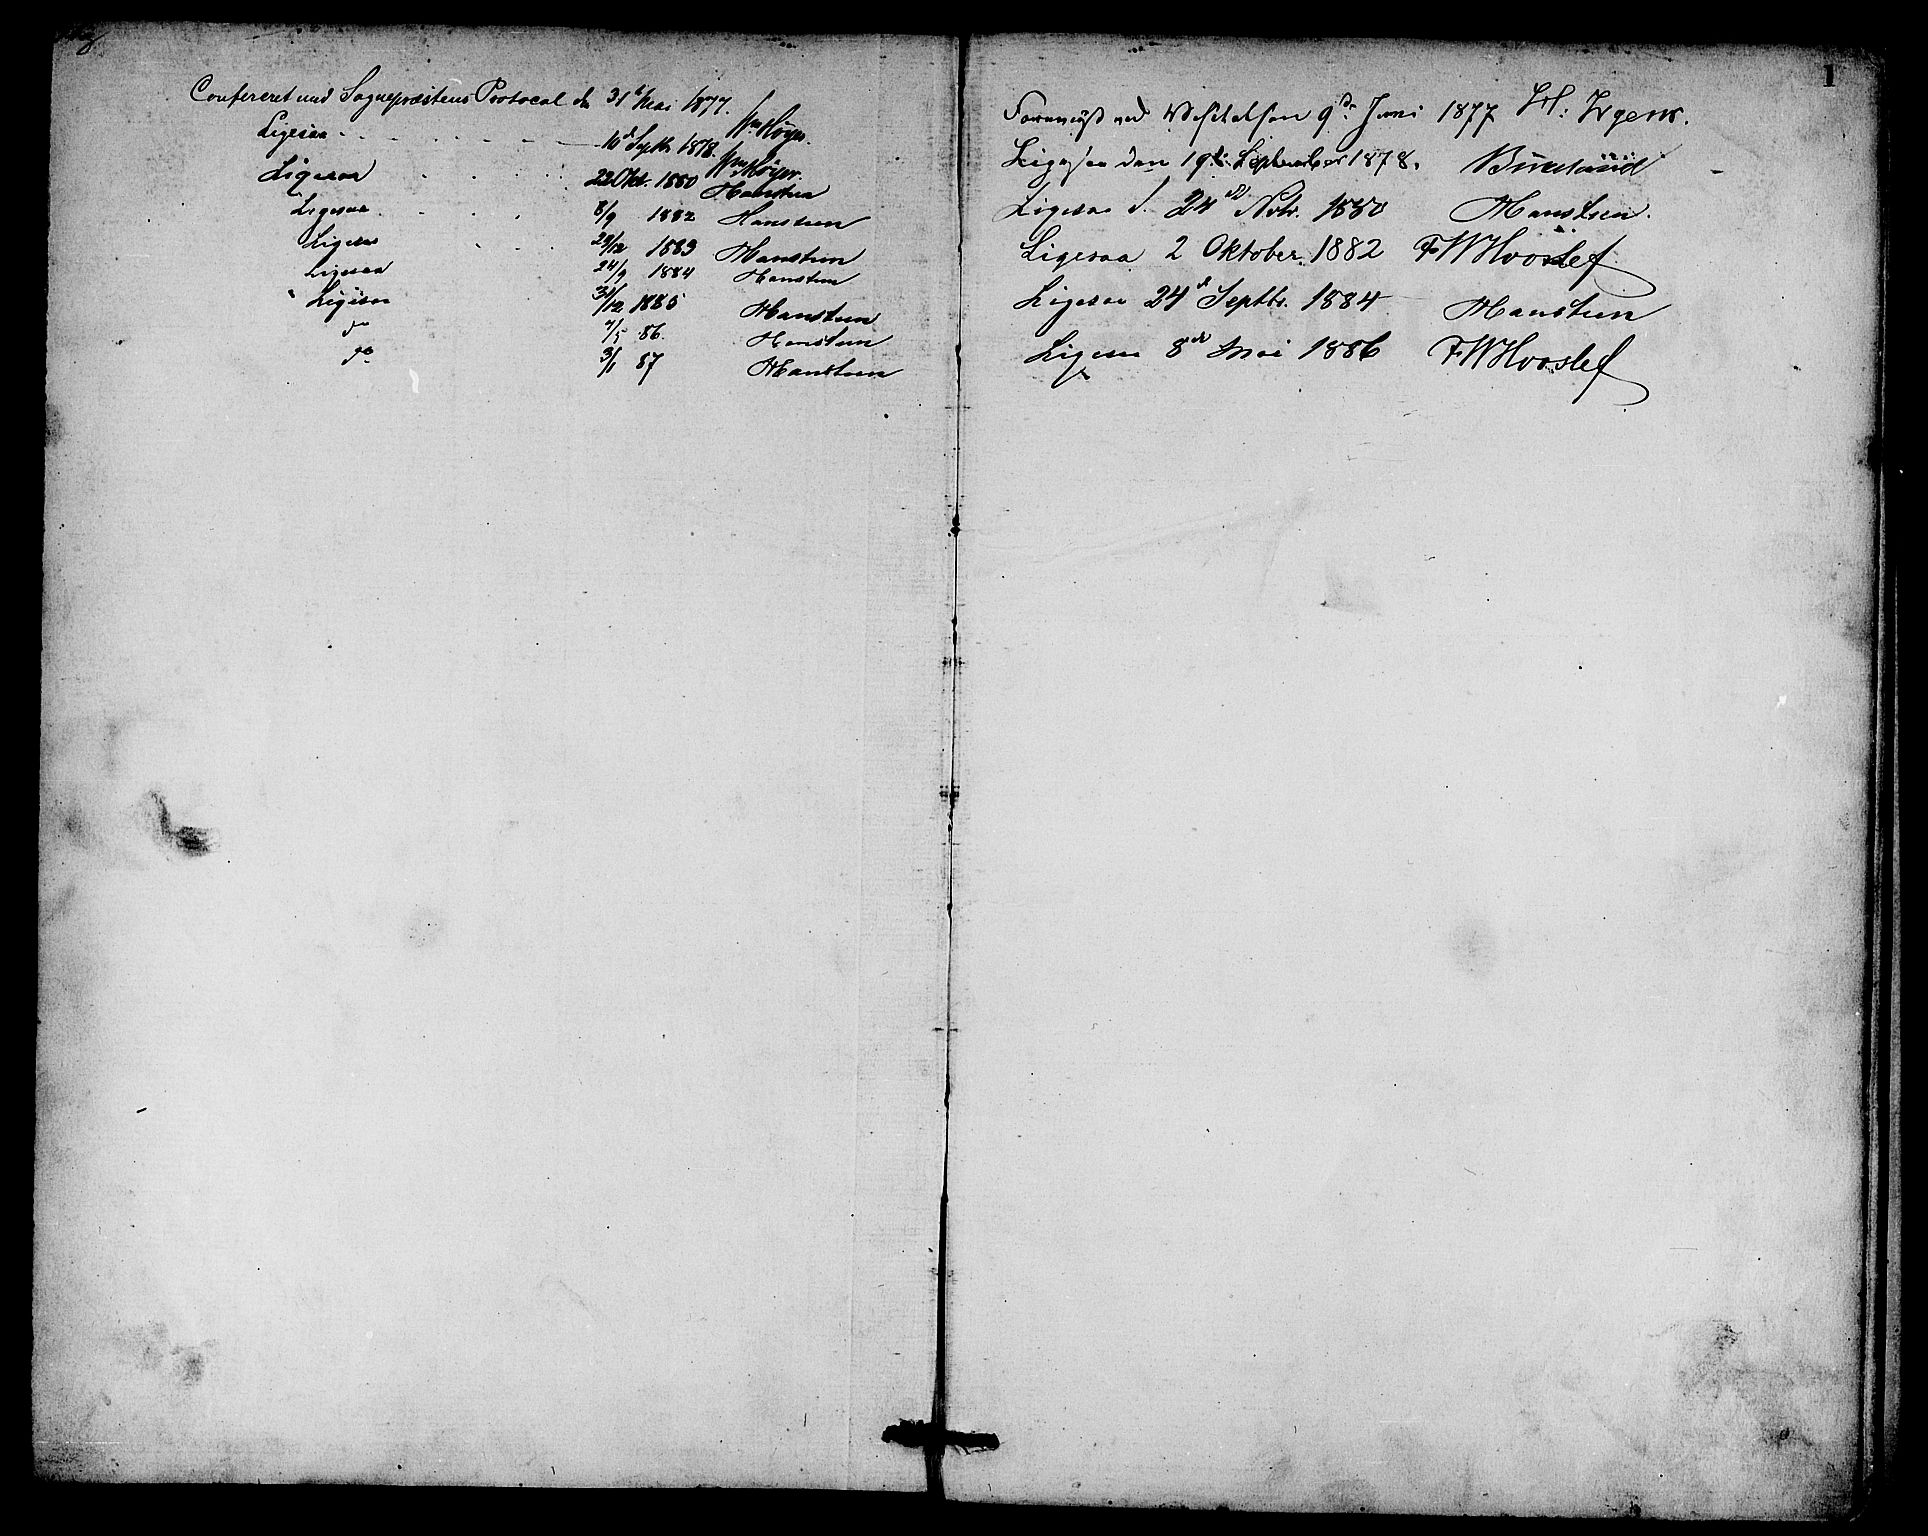 Confereret med Sognepræstens Protocol d. 31 d Mai 1877. Wm Høyer.
Ligesaa . . . . . 10 d Septb 1878. Wm Høyer.
Ligesaa . . . . 22 Okt. 1880 Hansteen
Ligesaa . . . 8/9 1882 Hansteen
Ligesaa . . . 29/12 1883 Hansteen
Ligesaa 24/9 1884 Hansteen
Ligesaa 31/12 1885 Hansteen
do 7/5 86. Hansteen
do 3/1 87 Hansteen
1
Foreviist ved Visitatsen 9de Juni 1877
Ligesaa den 19de September 1878.
Ligesaa d. 24de Novr. 1880 Hansteen.
Ligesaa 2 Oktober 1882 FW Hvoslef
Ligesaa 24 d Septbr. 1884 Hansteen
Ligesaa 8de Mai 1886 FW Hvoslef